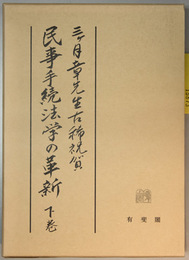 三ヶ月章先生古稀祝賀
民事手続法学の革新 下巻
有斐閣